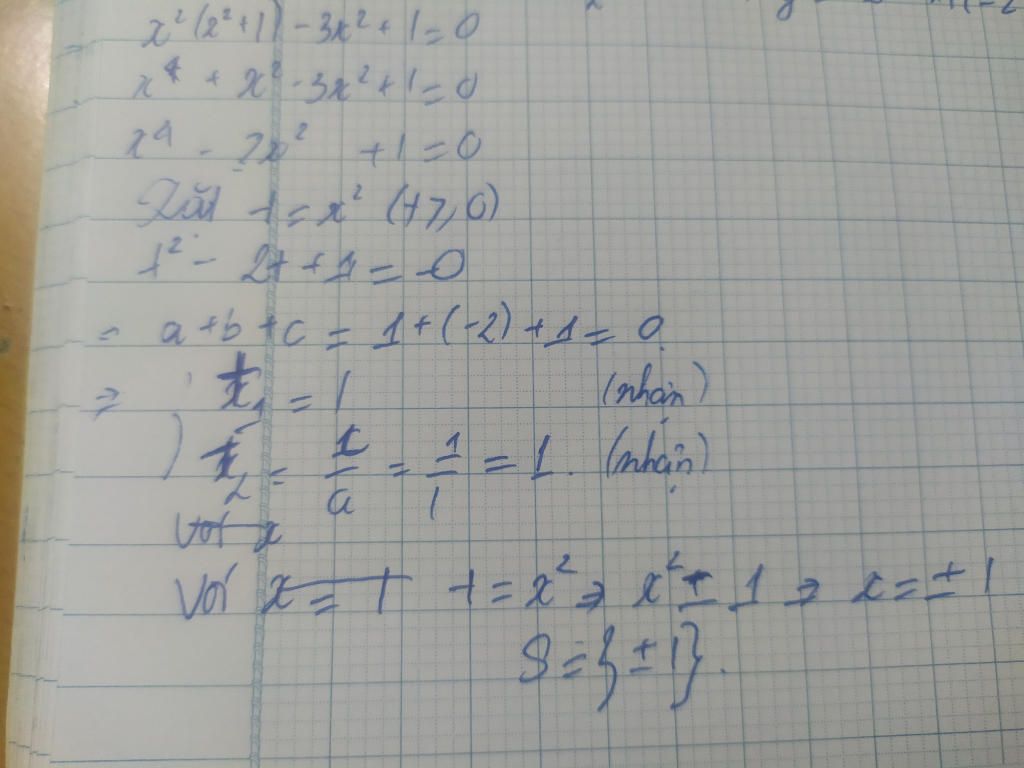 x²(2²+1) - 3x² + 1 = 0
x⁴ + x² - 3x² + 1 = 0
x⁴ - 2x² + 1 = 0
Đặt t = x² (t ≥ 0)
t² - 2t + 1 = 0
= a + b + c = 1 + (-2) + 1 = 0
⇒ t₁ = 1 (nhận)
t₂ = c/a = 1/1 = 1. (nhận)
Với x
Với x = 1 t = x² ⇒ x² = 1 ⇒ x = ± 1
S = {± 1}.